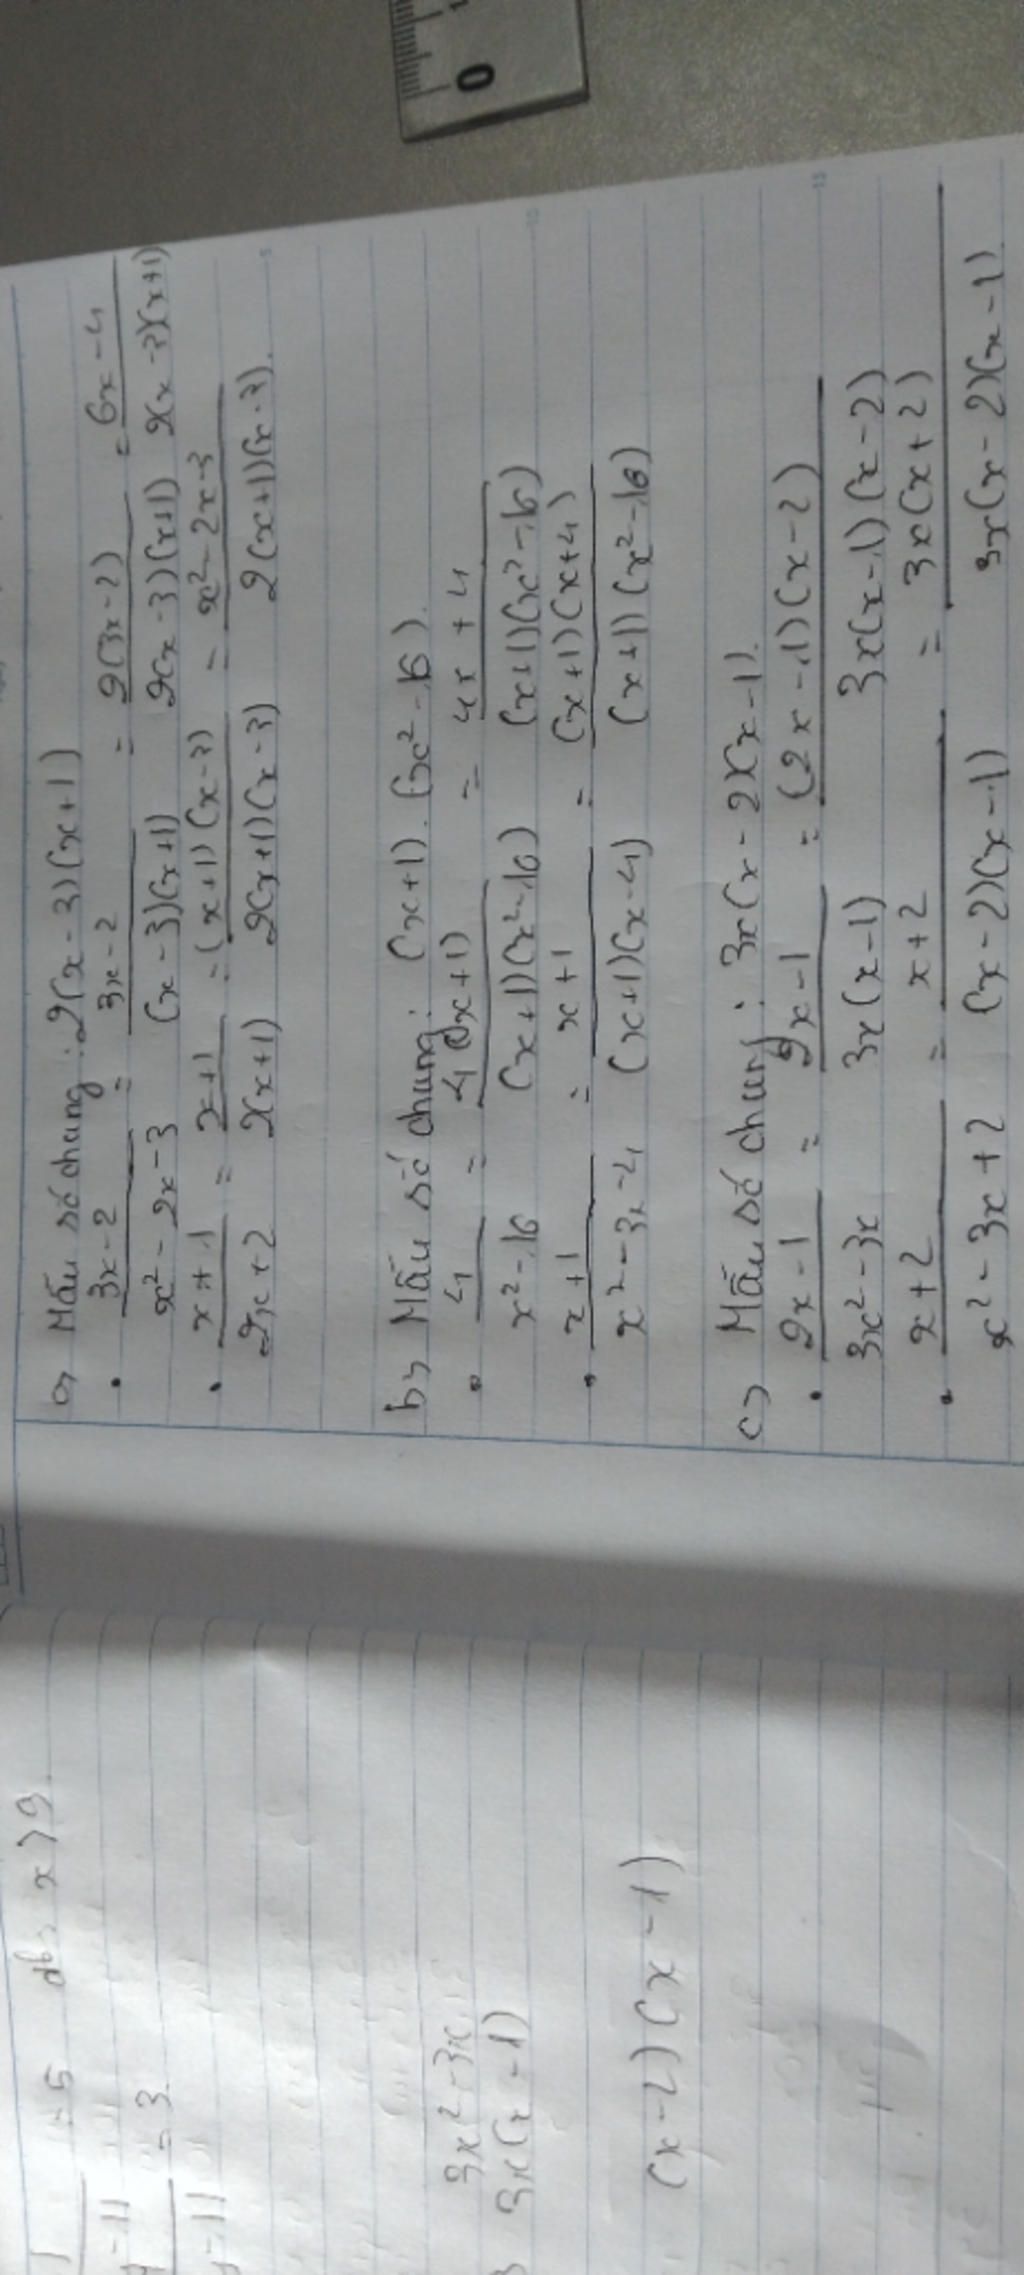 a, Mẫu số chung: 2(x-3)(x+1)
• 3x-2 / x²-2x-3 = 3x-2 / (x-3)(x+1) = 2(3x-2) / 2(x-3)(x+1) = 6x-4 / 2(x-3)(x+1)
• x+1 / 2x+2 = x+1 / 2(x+1) = (x+1)(x-3) / 2(x+1)(x-3) = x²-2x-3 / 2(x+1)(x-3).
b, Mẫu số chung: (x+1).(x²-16).
• 4 / x²-16 = 4(x+1) / (x+1)(x²-16) = 4x+4 / (x+1)(x²-16)
• x+1 / x²-3x-4 = x+1 / (x+1)(x-4) = (x+1)(x+4) / (x+1)(x²-16)
c, Mẫu số chung: 3x(x-2)(x-1).
• 2x-1 / 3x²-3x = 2x-1 / 3x(x-1) = (2x-1)(x-2) / 3x(x-1)(x-2)
• x+2 / x²-3x+2 = x+2 / (x-2)(x-1) = 3x(x+2) / 3x(x-2)(x-1)
= 5
x > 9
-11
= 3
-11
3x²-3x
3x(x-1)
(x-2)(x-1)
0
5
10
15